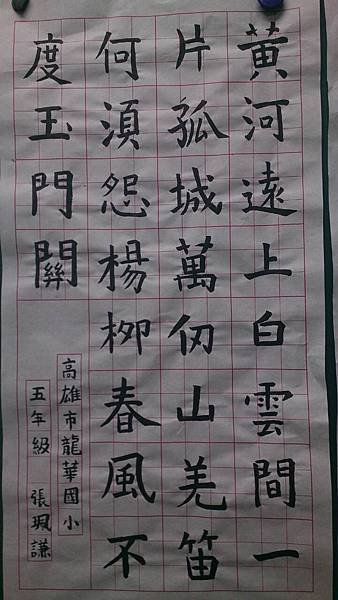 黃河遠上白雲間一
片孤城萬仞山羌笛
何須怨楊柳春風不
度玉門關
高雄市龍華國小
五年級 張珮謙